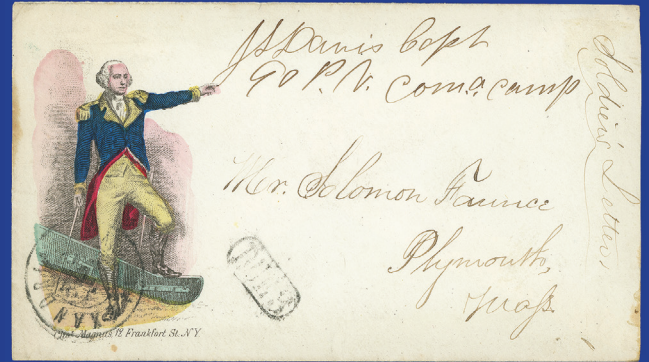 J S Davis Capt
90 P. V. Comg. Camp
Soldier's Letter
Mr. Solomon Faunce
Plymouth,
Mass.
DUE 3
Chas. Magnus, 12 Frankfort St. N.Y.